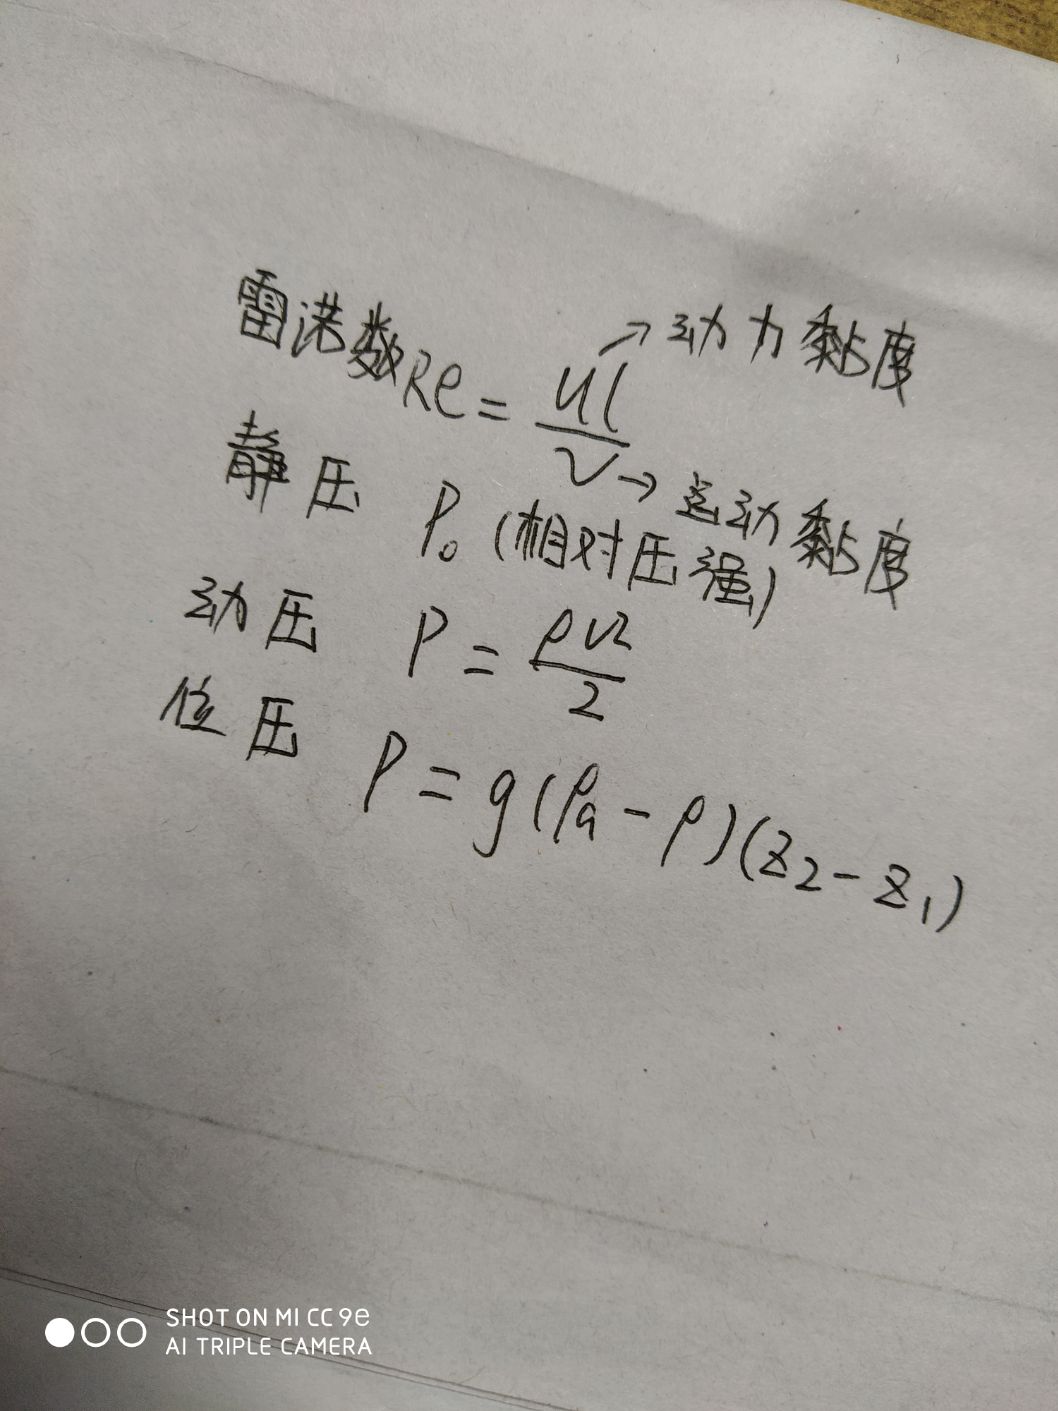 雷诺数Re = ul/ν → 动力黏度
→ 运动黏度
静压 P₀ (相对压强)
动压 P = ρv²/2
位压 P = g(ρa - ρ)(z₂ - z₁)
SHOT ON MI CC 9e
AI TRIPLE CAMERA